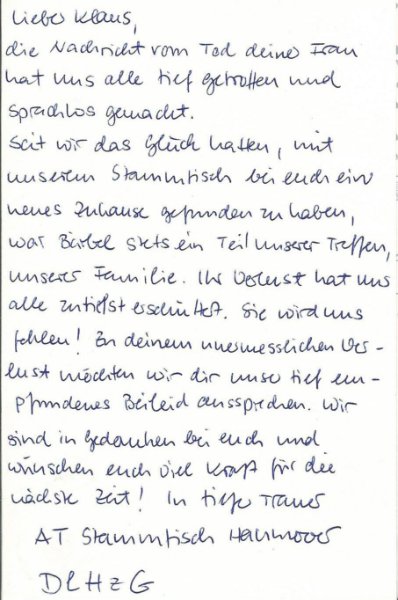 Lieber Klaus,
die Nachricht vom Tod deiner Frau
hat uns alle tief getroffen und
sprachlos gemacht.
Seit wir das Glück hatten, mit
unserem Stammtisch bei euch ein
neues Zuhause gefunden zu haben,
war Bärbel stets ein Teil unserer Treffen,
unserer Familie. Ihr Verlust hat uns
alle zutiefst erschüttert. Sie wird uns
fehlen! Zu deinem unermesslichen Ver-
lust möchten wir dir unser tief em-
pfundenes Beileid aussprechen. Wir
sind in Gedanken bei euch und
wünschen euch viel Kraft für die
nächste Zeit! In tiefer Trauer
AT Stammtisch Hannover
DLHzG